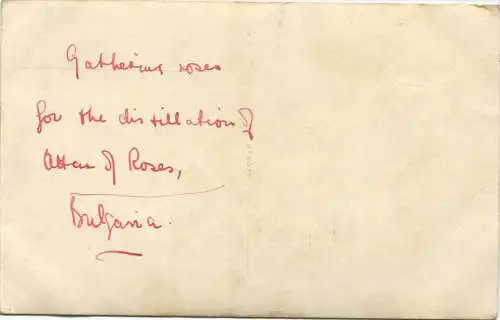 Gathering roses
for the distillation of
Attar of Roses,
Bulgaria.